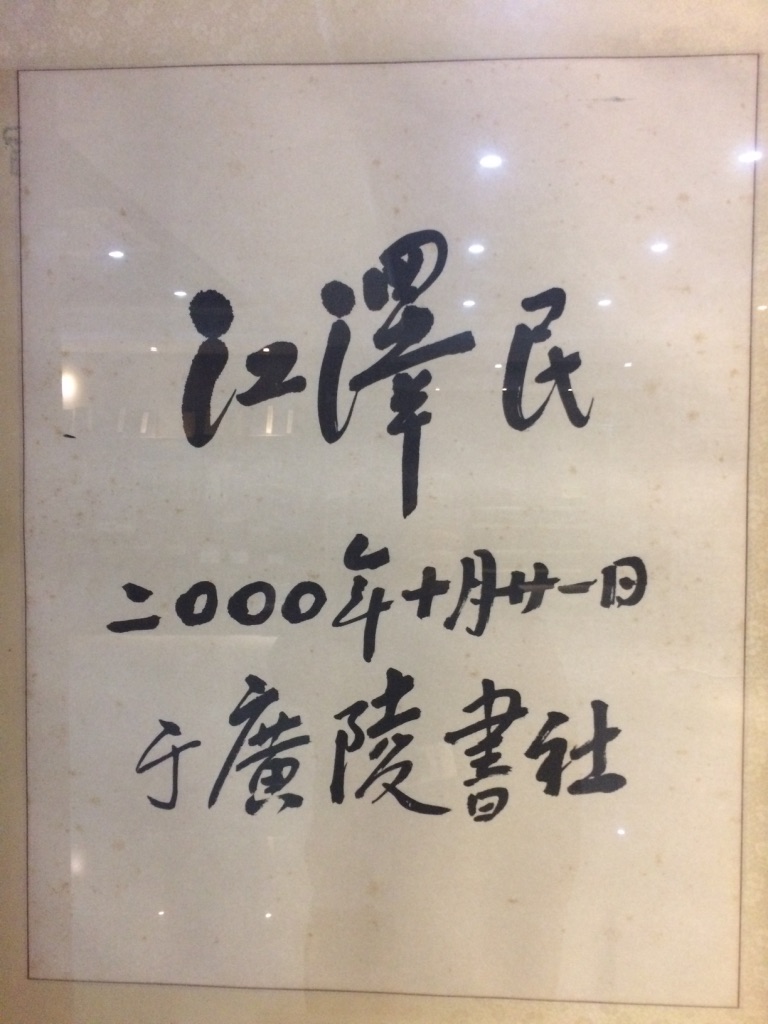 江澤民
二〇〇〇年十月廿一日
于廣陵書社